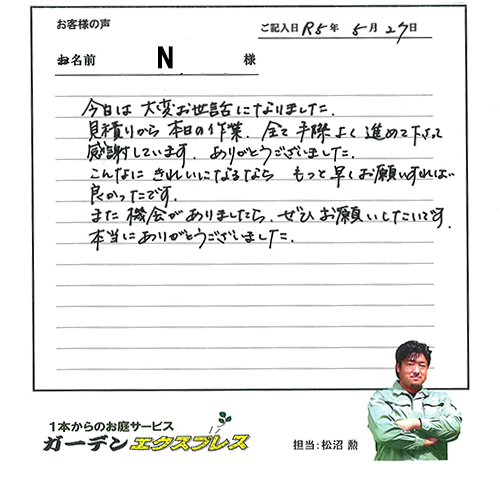 お客様の声
ご記入日 R5年 5月 27日
お名前 N 様
今日は 大変お世話になりました.
見積りから 本日の作業、全て 手際 よく 進めて下さって
感謝しています. ありがとうございました.
こんなに きれいになるなら もっと 早く お願いすれば
良かったです.
また 機会が ありましたら、ぜひ お願いしたいです.
本当に ありがとうございました.
1本からのお庭サービス
ガーデンエクスプレス
担当:松沼 勲